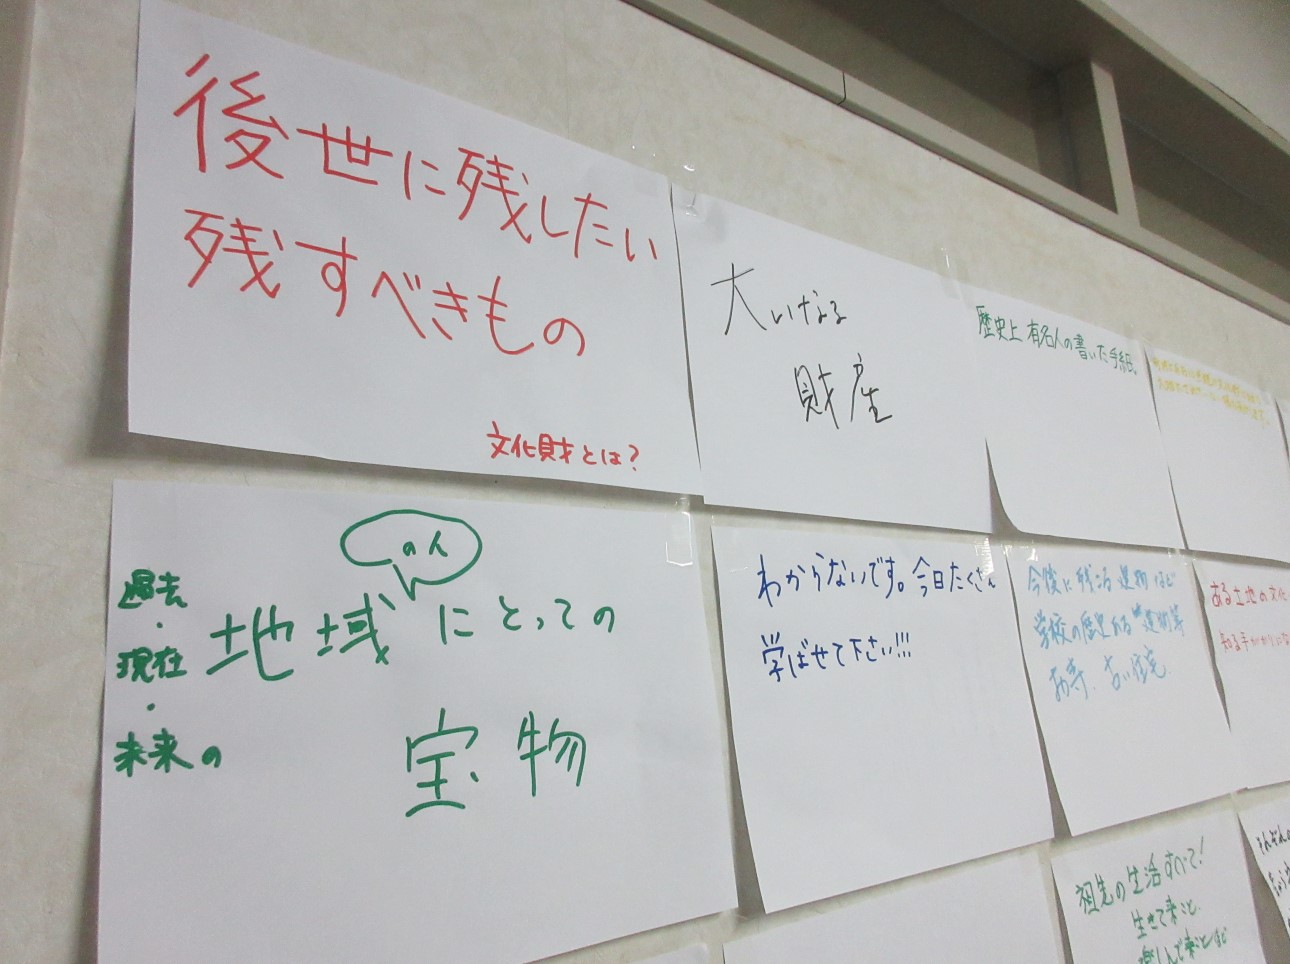 後世に残したい
残すべきもの
文化財とは?
大いなる
財産
歴史上 有名人の書いた手紙。
のん
過去・現在・未来の
地域にとっての
宝物
わからないです。今日たくさん
学ばせて下さい!!!
今後に残こる建物など
学校の歴史ある建物等
お寺、古い住宅
ある土地の文化
知る手がかりにな
祖先の生活すべて!
生きて来こと
楽しんで来ことなど
それぞれの